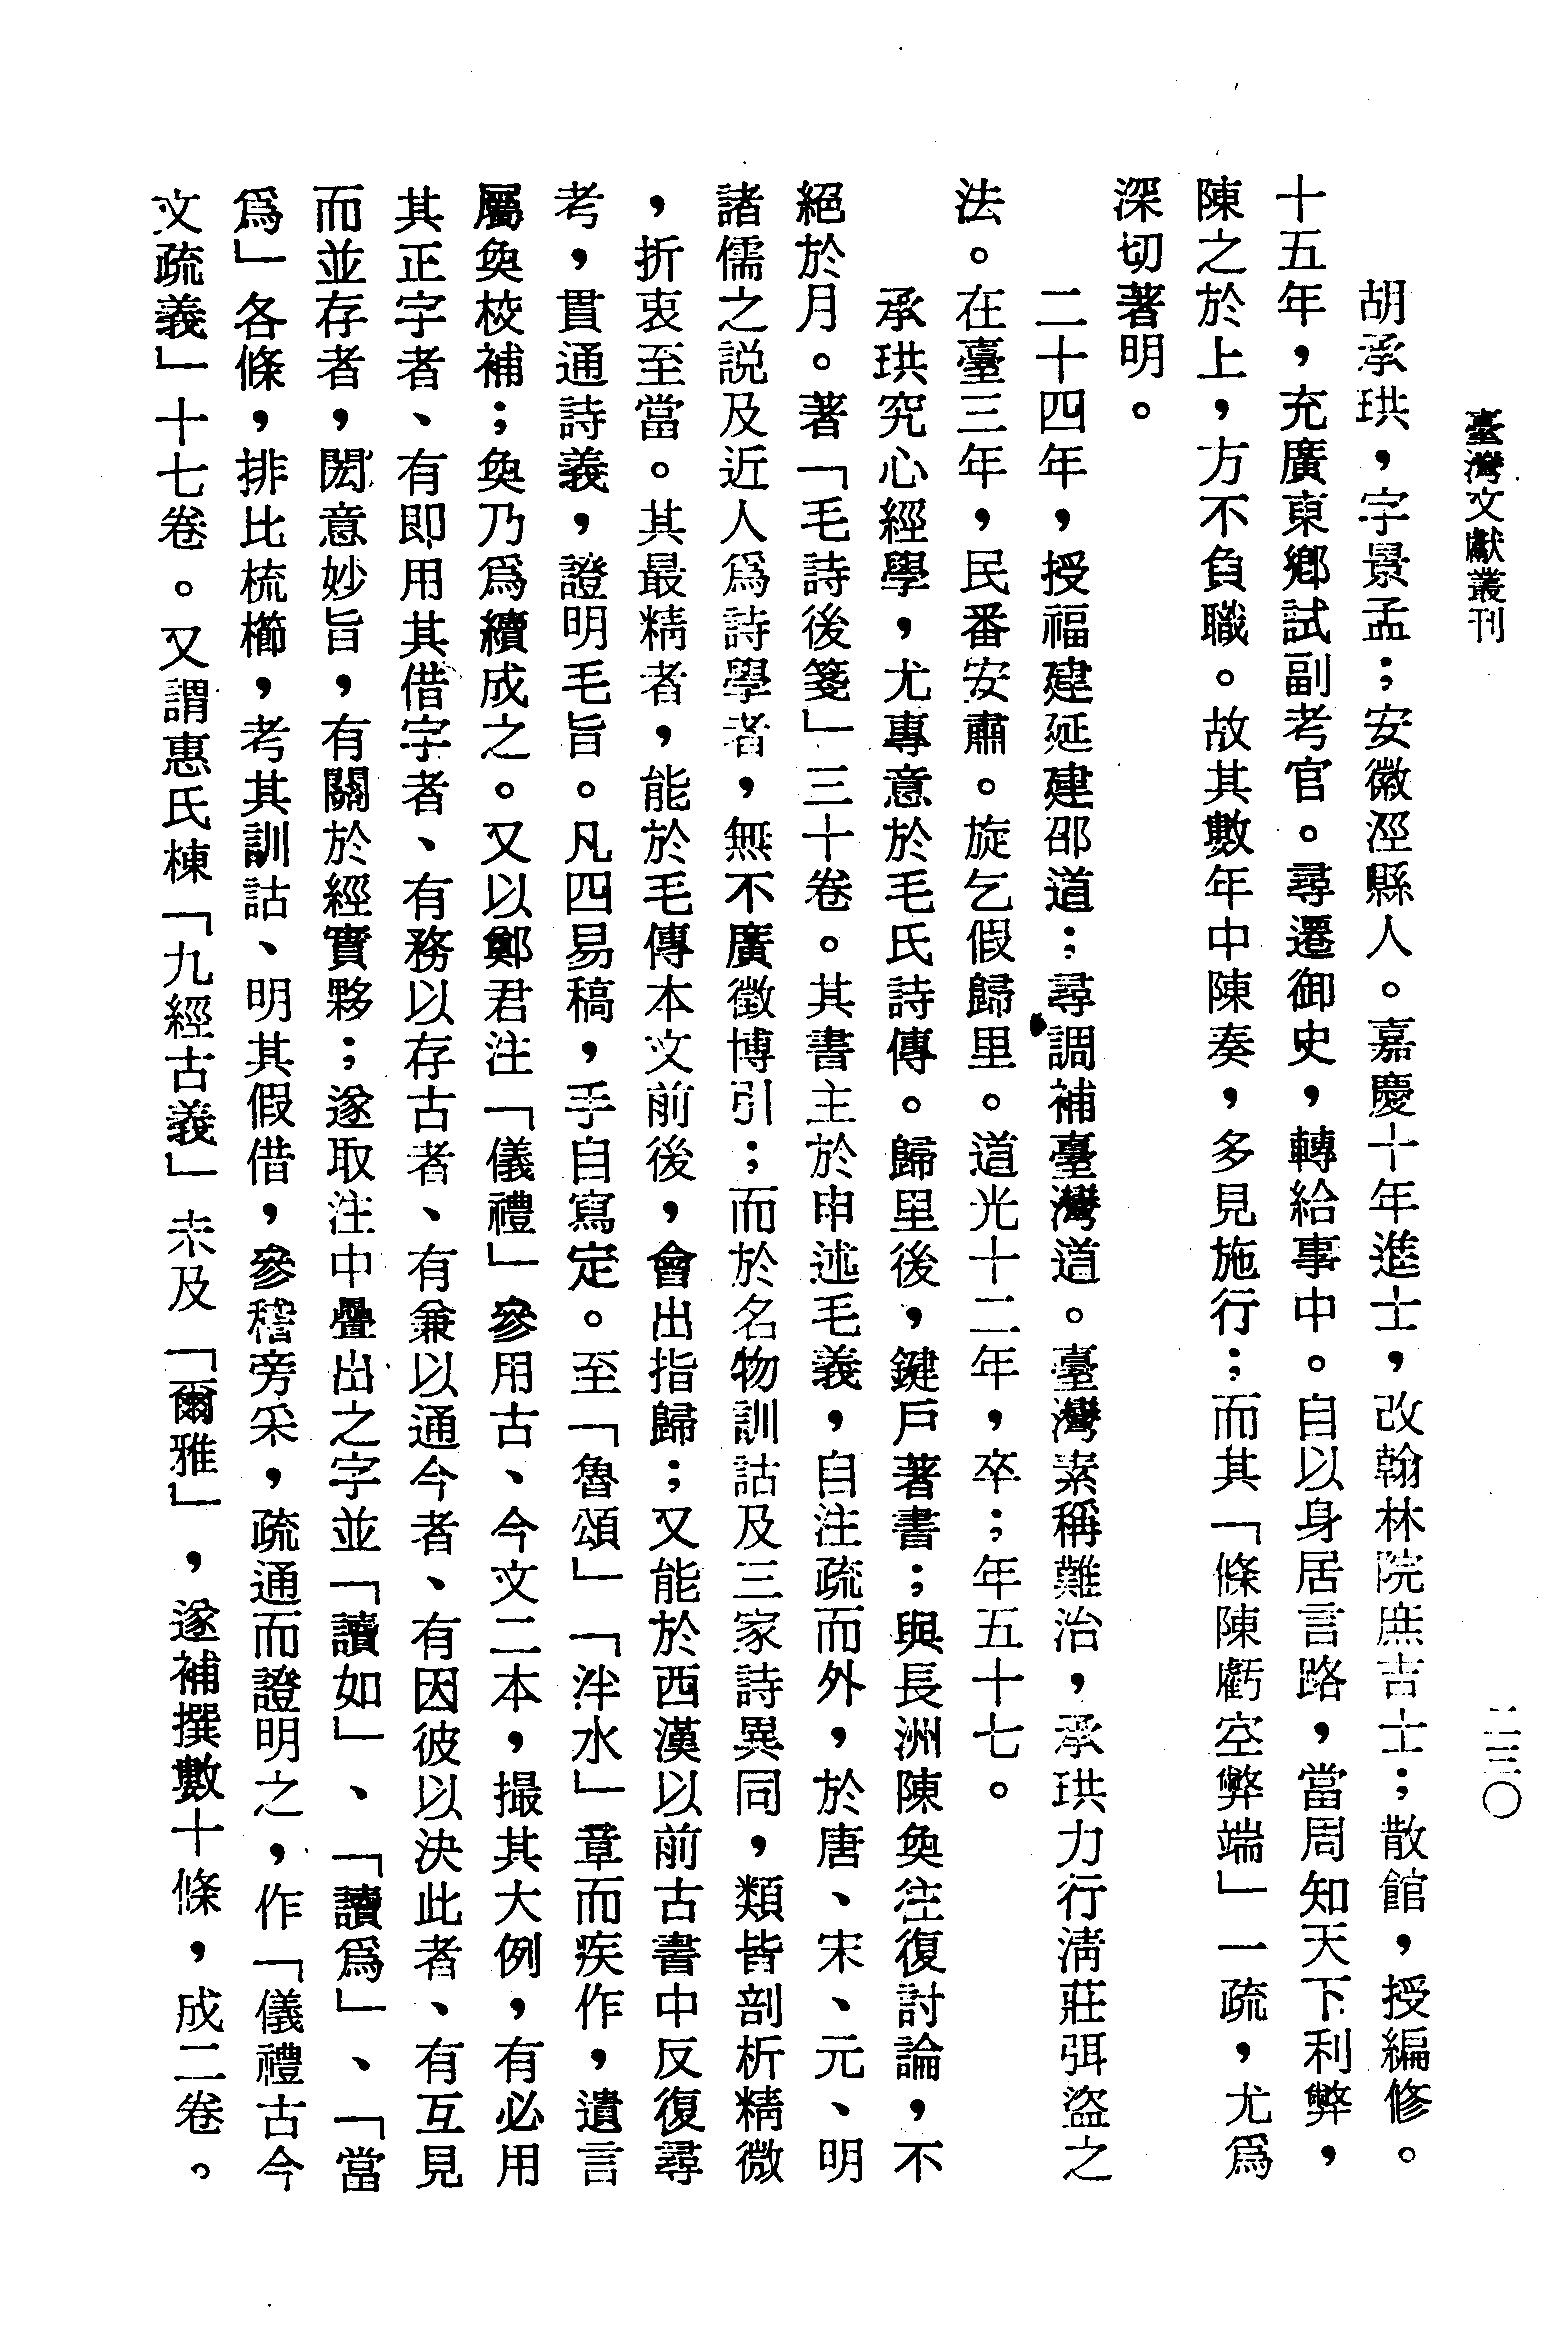 臺灣文獻叢刊
二三〇
胡承珙，字景孟；安徽涇縣人。嘉慶十年進士，改翰林院庶吉士；散館，授編修。
十五年，充廣東鄉試副考官。尋遷御史，轉給事中。自以身居言路，當周知天下利弊，
陳之於上，方不負職。故其數年中陳奏，多見施行；而其「條陳虧空弊端」一疏，尤爲
深切著明。
二十四年，授福建延建邵道；尋調補臺灣道。臺灣素稱難治，承珙力行清莊弭盜之
法。在臺三年，民番安肅。旋乞假歸里。道光十二年，卒；年五十七。
承珙究心經學，尤專意於毛氏詩傳。歸里後，鍵戶著書；與長洲陳奐往復討論，不
絕於月。著「毛詩後箋」三十卷。其書主於申述毛義，自注疏而外，於唐、宋、元、明
諸儒之説及近人爲詩學者，無不廣徵博引；而於名物訓詁及三家詩異同，類皆剖析精微
，折衷至當。其最精者，能於毛傳本文前後，會出指歸；又能於西漢以前古書中反復尋
考，貫通詩義，證明毛旨。凡四易稿，手自寫定。至「魯頌」「泮水」章而疾作，遺言
屬奐校補；奐乃爲續成之。又以鄭君注「儀禮」參用古、今文二本，撮其大例，有必用
其正字者、有即用其借字者、有務以存古者、有兼以通今者、有因彼以決此者、有互見
而並存者，閎意妙旨，有關於經實夥；遂取注中疊出之字並「讀如」、「讀爲」、「當
爲」各條，排比梳櫛，考其訓詁、明其假借，參稽旁采，疏通而證明之，作「儀禮古今
文疏義」十七卷。又謂惠氏棟「九經古義」未及「爾雅」，遂補撰數十條，成二卷。